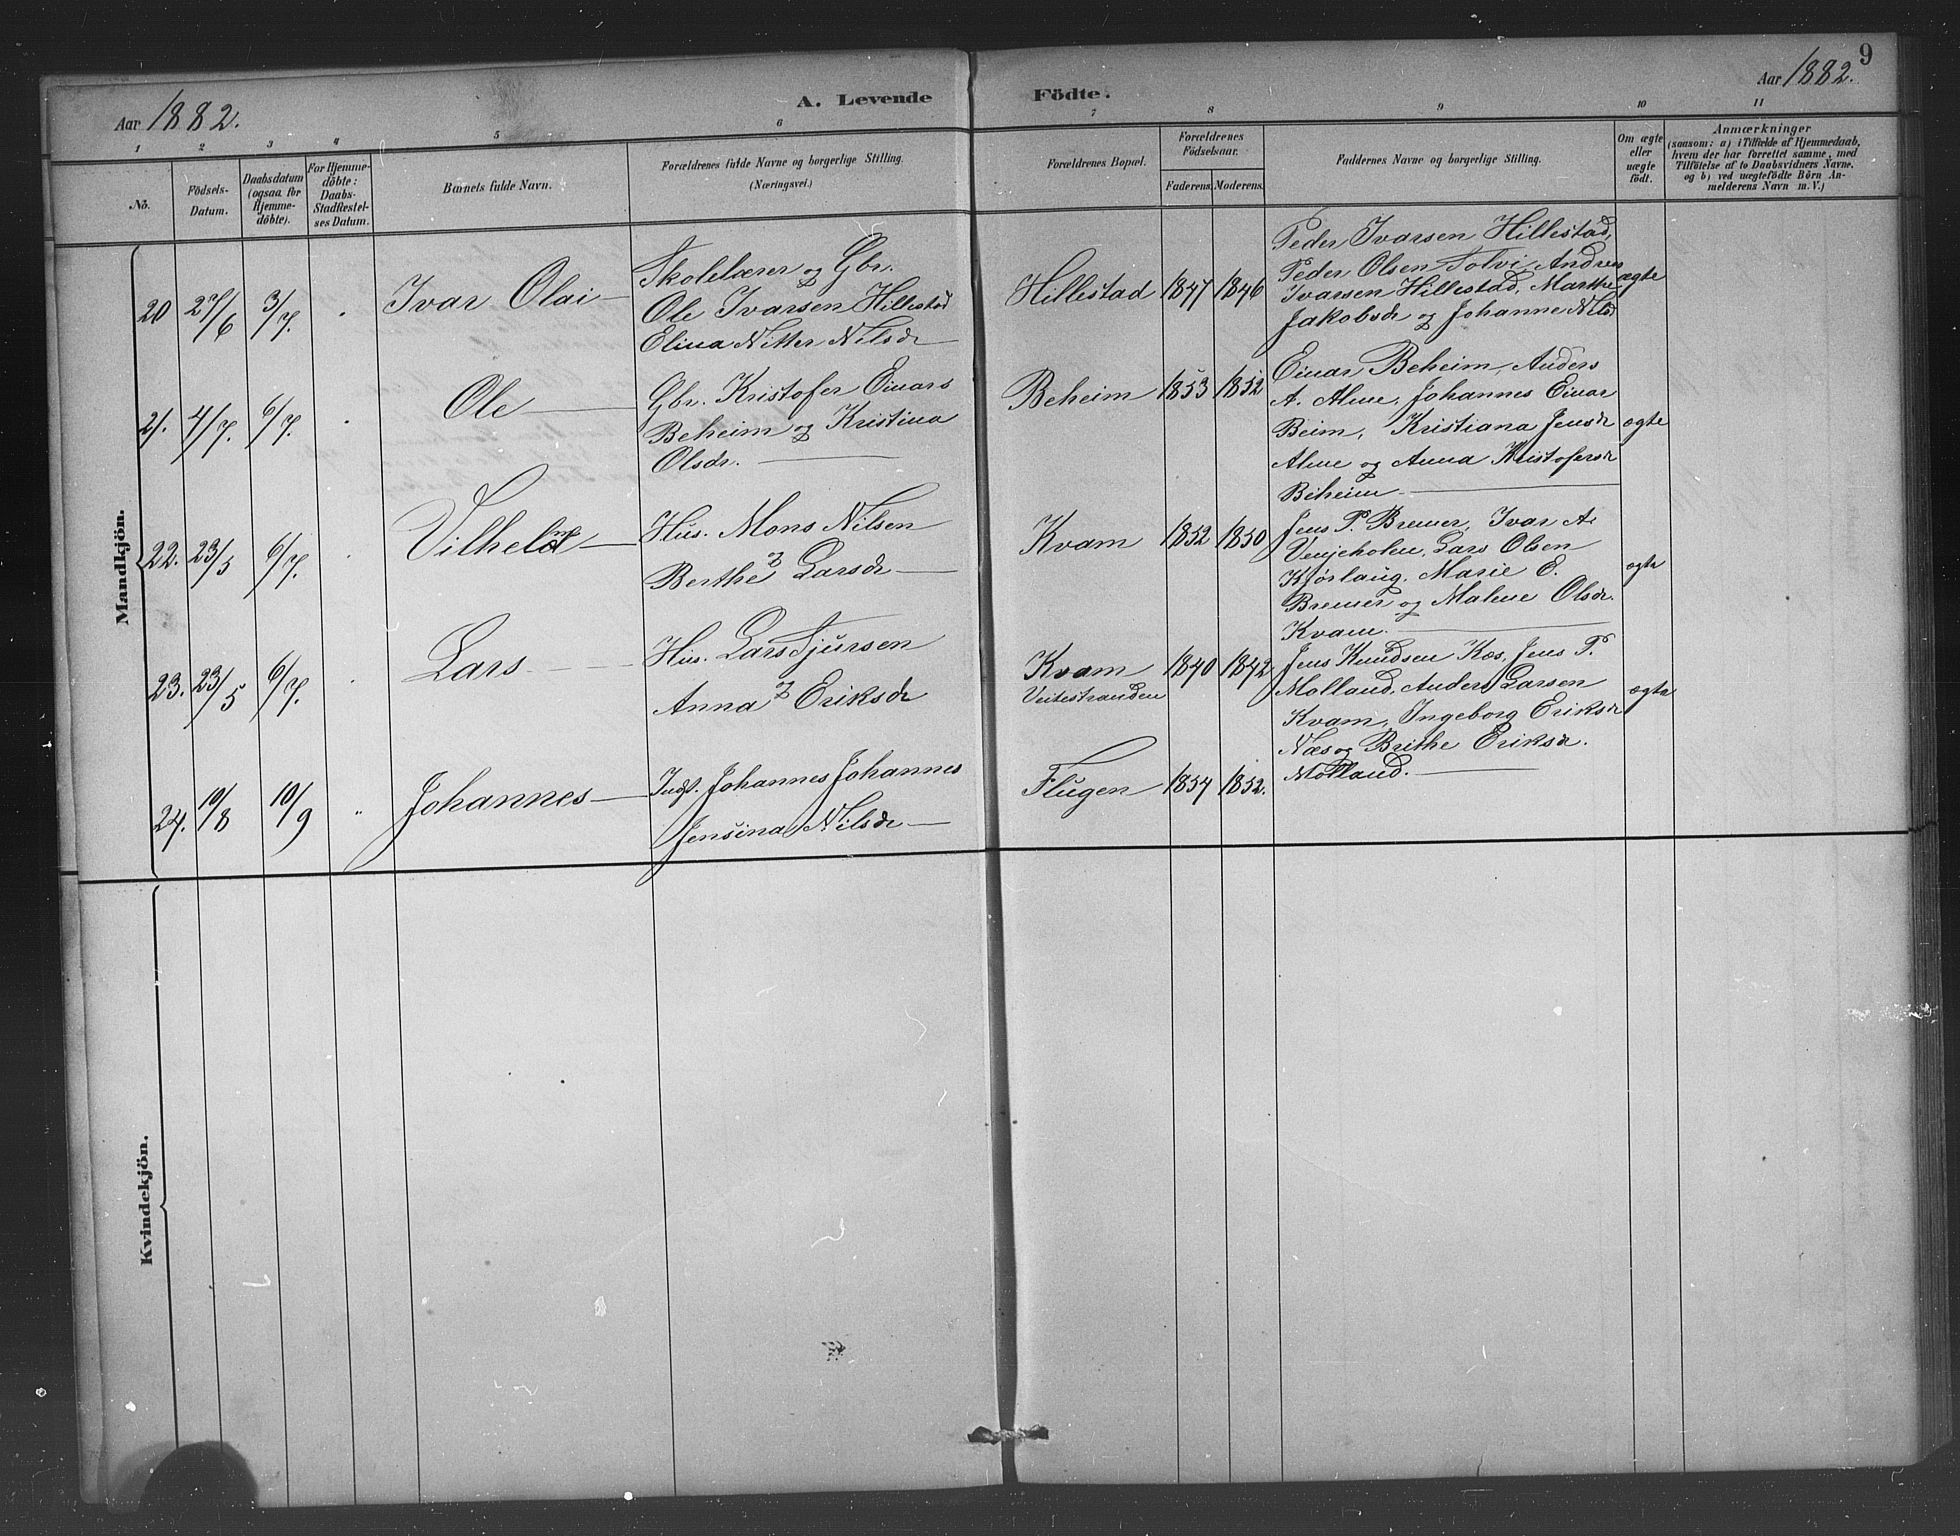 9
Aar 1882.
A. Levende Födte.
Aar 1882.
1 2 3 4 5 6 7 8 9 10 11
No.
Födsels-
Datum.
Daabsdatum
(ogsaa for
Hjemme-
döbte).
For Hjemme-
döbte:
Daabs-
Stadfæstel-
ses Datum.
Barnets fulde Navn.
Forældrenes fulde Navne og borgerlige Stilling.
(Næringsvei.)
Forældrenes Bopæl.
Forældrenes
Födselsaar.
Faderens. Moderens.
Faddernes Navne og borgerlige Stilling.
Om ægte
eller
uægte
födt.
Anmærkninger
(saasom: a) i Tilfælde af Hjemmedaab,
hvem der har forrettet samme, med
Tilföielse af to Daabsvidners Navne,
og b) ved uægtefödte Börn An-
melderens Navn m. V.)
Mandkjön.
20 27/6 3/7. Ivar Olai
Skolelærer og Gbr.
Ole Ivarsen Hillestad
Elina Nitter Nilsdr
Hillestad 1847 1846
Peder Ivarsen Hillestad,
Peder Olsen Solvi, Andreas
Ivarsen Hillestad, Marthe
Jakobsdr og Johanne Nilsd
ægte
21. 4/7. 6/7. Ole
Gbr. Kristofer Einars
Beheim og Kristina
Olsdr.
Beheim 1853 1852
Einar Beheim, Anders
A. Alme, Johannes Einar
Beim, Kristiana Jensdr
Alme og Anna Kristofersdr
Beheim
ægte
22. 23/5 6/7. Vilhelm
Hus. Mons Nilsen
og
Berthe Larsdr
Kvam 1852 1850
Jens P. Bremer, Ivar A.
Venjeholen, Lars Olsen
Kjørlaug, Marie E.
Bremer og Malene Olsdr.
Kvam.
ægte
23. 23/5 6/7. Lars
Hus. Lars Sjursen
og
Anna Eriksdr
Kvam
Veitestranden
1840 1842
Jens Knudsen Næs, Jens P.
Molland, Anders Larsen
Kvam, Ingeborg Eriksdr
Næs og Brithe Eriksdr.
Molland.
ægte
24. 10/8 10/9 " Johannes
Indst. Johannes Johannes
Jensina Nilsdr
Flugen 1854 1852.
Kvindekjön.